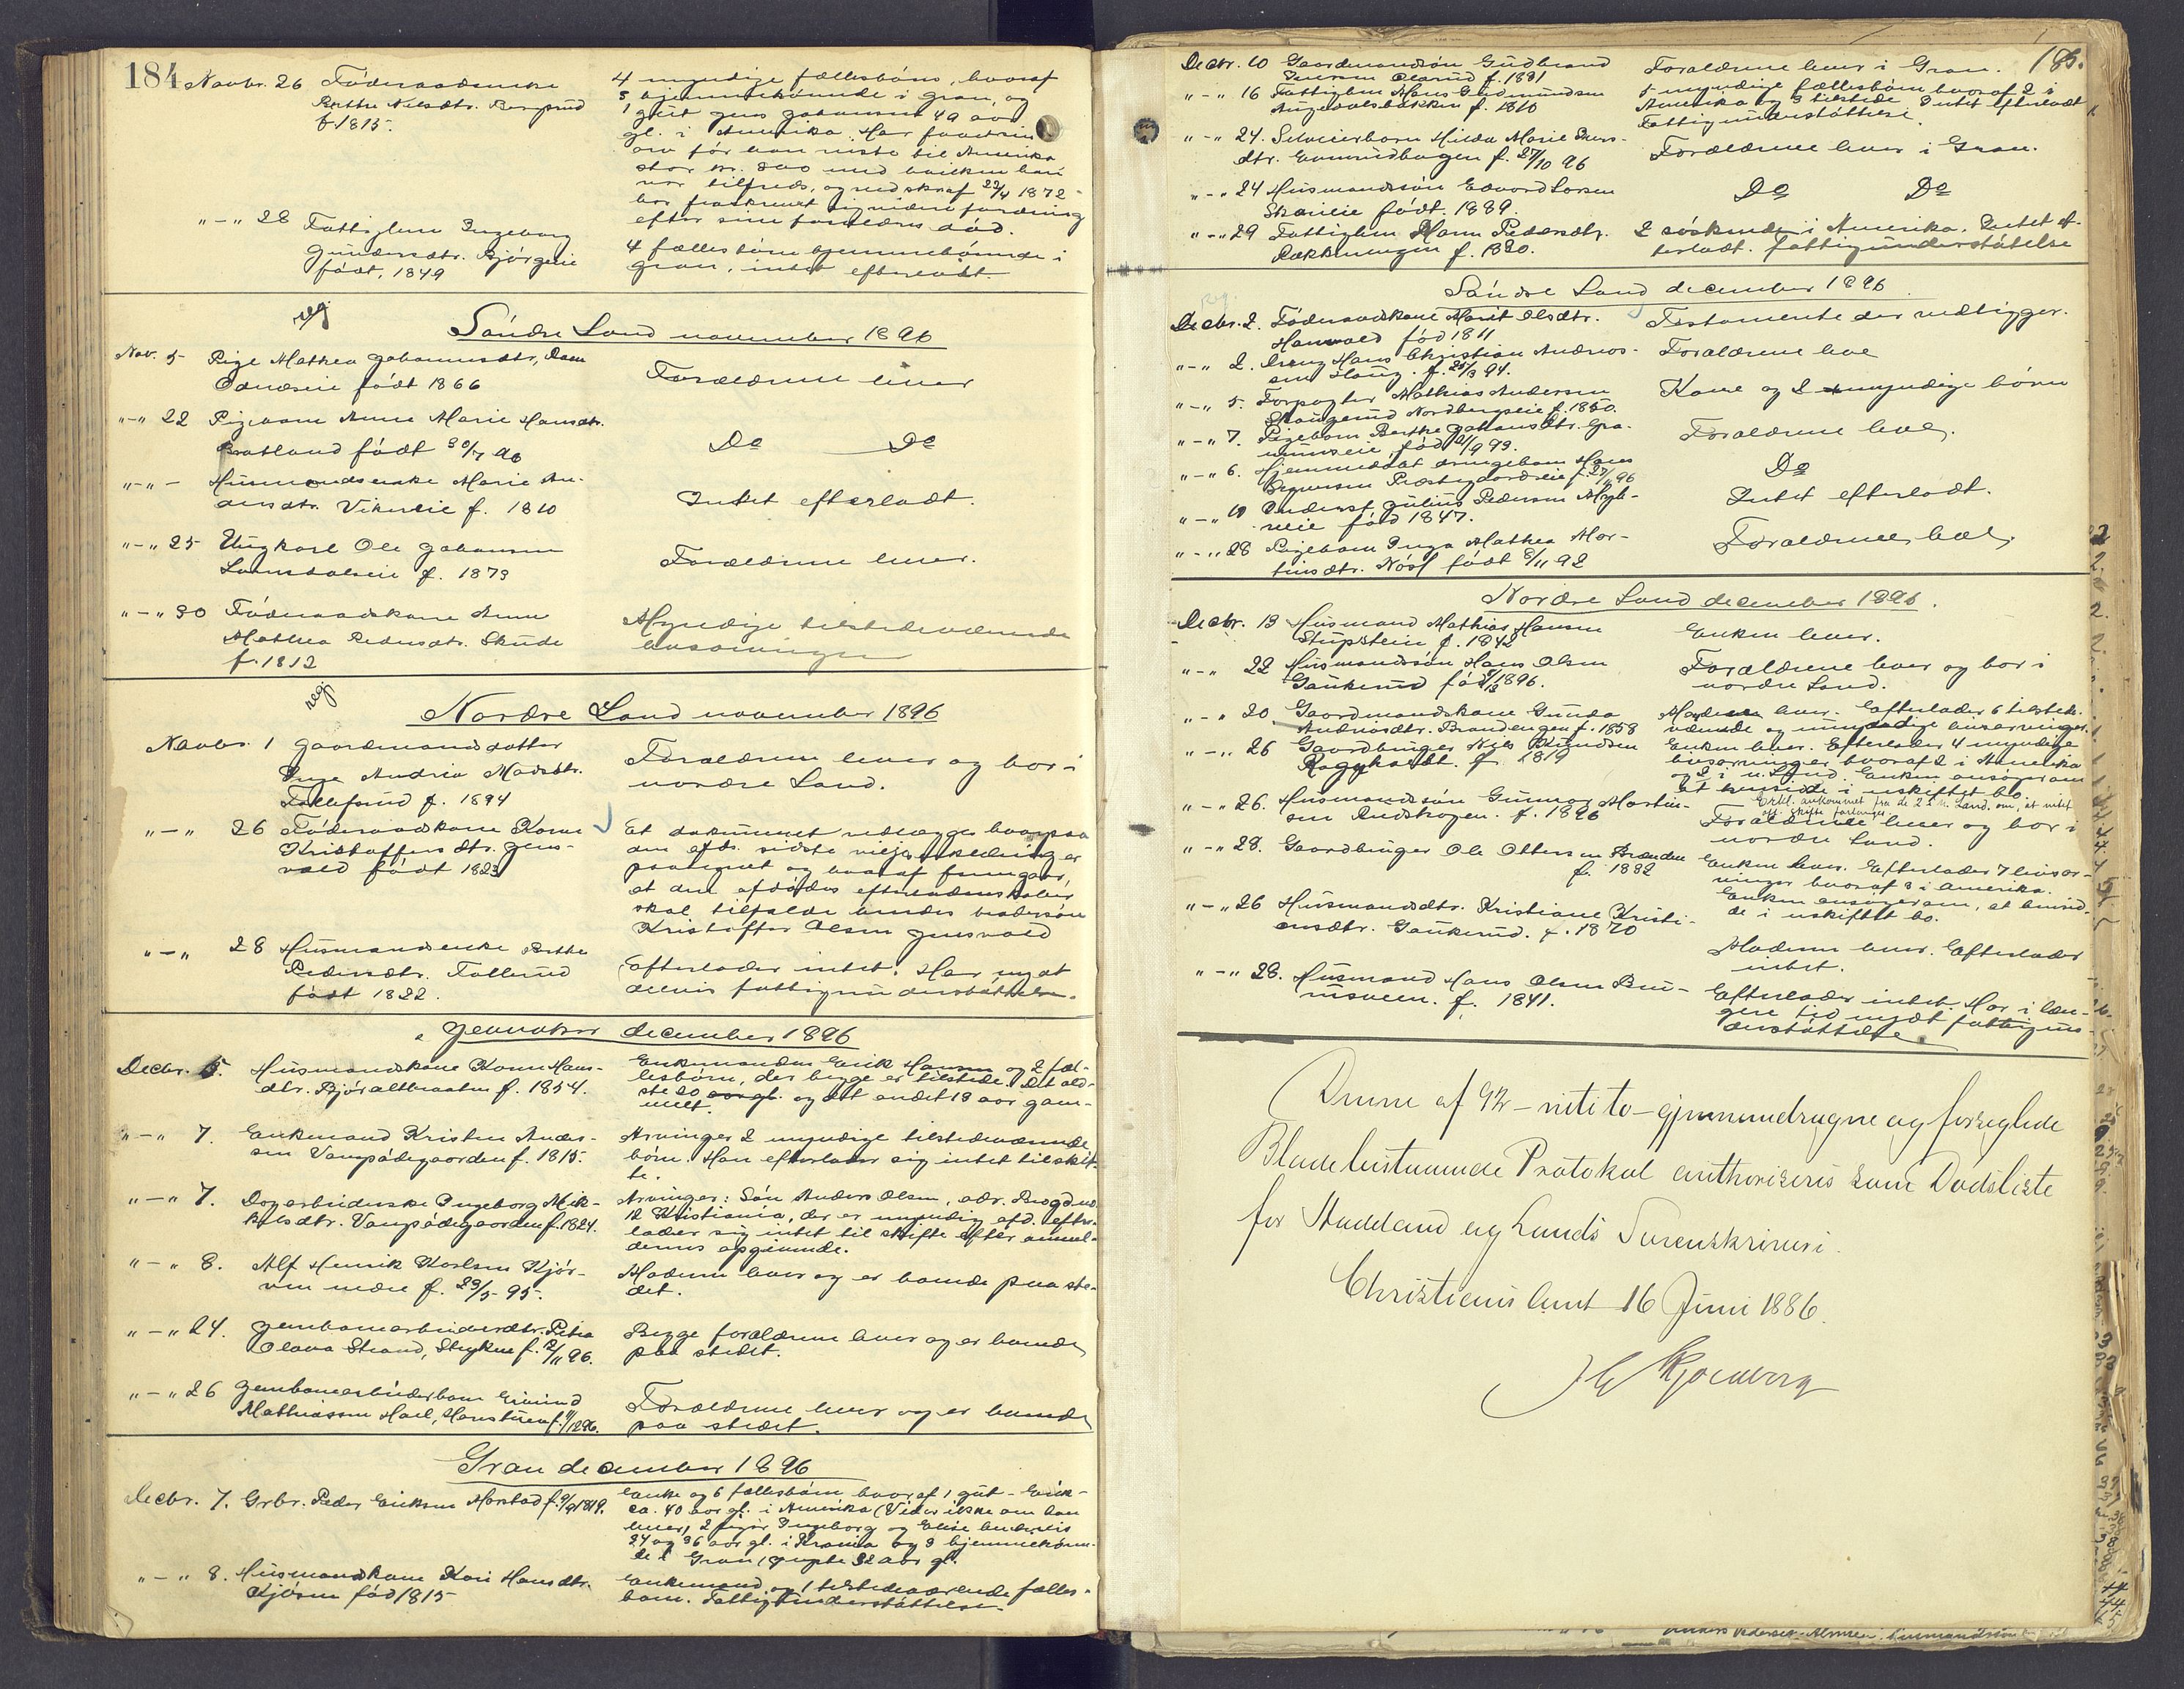 184
Novbr. 26 Föderaadsenke
Berthe Nilsdtr.
f. 1815.
4 myndige fællesbörn, hvoraf
3 hjemmehörende i Gran, og
1 gut Jens Johansen 49 aar
gl. i Amerika. Har
arv för han reiste til Amerika
stor kr. 800 med hvilken han
var tilfreds, og ved skraf 22/4 1872
har fraskrevet sig videre fordring
efter sine forældres död.
"-" 28 Fattiglem Ingeborg
Gundersdtr. Bjørgeeie
födt, 1849
4 fællesbörn hjemmehörende i
Gran, intet efterladt.
reg
Söndre Land november 1896
Nov. 5 Pige Mathea Johannesdtr,
Odnæseie födt 1866
Forældrene lever
"-" 22 Pigebarn Anne Marie Hansdtr.
Bratland födt 30/7 96
Do Do
"-"- Husmandsenke Marie An-
dersdtr. Vikereie f. 1810
Intet efterladt.
"-" 25 Ungkarl Ole Johansen
Lomsdalseie f. 1873
Forældrene lever.
"-" 30 Föderaadskone Anne
Mathea Pedersdtr. Skude
f. 1812
Myndige tilstedeværende
livsarvinger
reg
Nordre Land november 1896
Novbr. 1 Gaardmandsdatter
Inga Andrea Madsdtr.
Tollefsrud f. 1894
Forældrene lever og bor i
nordre Land.
"-" 26 Föderaadskone Karen
Kristoffersdtr. Jens-
vold födt 1823
Et dokument vedlægges hvorpaa
den afds. sidste viljeserklæring er
paategnet og hvoraf fremgaar,
at den afdödes efterladenskaber
skal tilfalde hendes brodersön
Kristoffer Olsen Jensvold
"-" 28 Husmandsenke Berthe
Pedersdtr. Tollerud
födt 1822.
Efterlader intet. Har nydt
delvis fattigunderstöttelse.
Jevnaker december 1896
Decbr. 5. Husmandskone Karen Hans-
dtr. Björaltbraaten f. 1854.
Enkemanden Erik Hansen og 2 fæl-
lesbörn, der begge er tilstede. Det æld-
ste 20 aar gl. og det andet 13 aar gam-
melt.
"-" 7. Enkemand Kristen Ander-
sen Vangsödegaarden f. 1815.
Arvinger 2 myndige tilstedeværende
börn. Han efterlader sig intet til skif-
te.
"-" 7. Dagarbeiderske Ingeborg Mik-
kelsdtr. Vangsödegaarden f. 1824.
Arvinger: Sön Anders Olsen, adr. Brogd no
12 Kristiania, der er myndig afd. efter-
lader sig intet til skifte efter anmel-
derens opgivende.
"-" 8. Alf Henrik Karlsen Kjör-
ven nedre f. 23/5 95.
Moderen lever og er boende paa ste-
det.
"-" 24. Jernbanearbeiderdtr. Petra
Olava Strand, Stryken f. 12/11 96.
Begge forældrene lever og er boende
paa stedet.
"-" 26 Jernbanearbeiderbarn Eivind
Mathiassen Hael, f. 11/12 96.
Forældrene lever og er boende
paa stedet.
Gran december 1896
Decbr. 7. Grbr. Peder Eriksen Morstad f. 9/9 1819.
Enke og 6 fællesbörn hvoraf 1 gut - Erik -
ca. 40 aar gl. i Amerika (Vides ikke om han
lever, 2 piger Ingeborg og Elise henholdsvis
34 og 36 aar gl. i Krania og 3 hjemmehören-
de i Gran, yngste 32 aar gl.
"-" 8. Husmandskone Kari Hansdtr.
Kjösen föd 1815
Enkemand og 1 tilstedeværende fælles-
barn. Fattigunderstöttelse.
185.
Decbr. 10 Gaardmandssön Gudbrand
Iversen Olerud f. 1881
Forældrene lever i Gran.
"-" 16 Fattiglem Hans Gudmundsen
Augedalsbakken f. 1810
5 myndige fællesbörn hvoraf 2 i
Amerika og 3 tilstede. Intet efterladt
Fattigunderstöttelse.
"-" 24. Selveierbarn Hilda Marie Ivers-
dtr. f. 27/10 96
Forældrene lever i Gran.
"-" 24 Husmandssön Edvard Larsen
Skarieie födt. 1889.
Do Do
"-" 29 Fattiglem Maren Pedersdtr.
Dækkeneng f. 1820.
2 söskende i Amerika. Intet ef-
terladt. fattigunderstöttelse
Söndre Land december 1896
Decbr. 2. Föderaadskone Marit Olsdtr.
Hanvold föd 1811
Testamente der vedligger.
"-" 2. Dreng Hans Christian Andreas-
sen Haug f. 25/3 94.
Forældrene leve
"-" 5. Forpagter Mathias Andersen
Skaugerud Nordbergseie f. 1850.
Kone og 2 myndige börn
"-" 7. Pigebarn Berthe Johansdtr. Gra-
numseie, föd 12/9 93.
Forældrene leve.
"-" 6. Hjemmedöbt drengebarn Hans
Segversen Prestegaardseie f. 27/11 96
Do
"-" 10 Inderst Julius Pedersen Mögl-
neie föd 1847.
Intet efterladt.
"-" 28 Pigebarn Inga Mathea Mor-
tinsdtr. Nöss födt 8/11 92
Forældrene leve.
Nordre Land december 1896.
Decbr. 13 Husmand Mathias Hansen
Stupsteien f. 1842
Enken lever.
"-" 22 Husmandssön Hans Olsen
Gaukerud föd 5/12 1896.
Forældrene lever og bor i
nordre Land.
"-" 20 Gaardmandskone Gunda
Andreasdtr. Brandengen f. 1858
Manden lever. Efterlader 6 tilstede-
værende og umyndige livsarvinger.
"-" 26 Gaardbruger Nils Knudsen
Ragghardt. f. 1819
Enken lever. Efterlader 4 myndige
livsarvinger hvoraf 2 i Amerika
og 2 i n. Land. Enken ansöger om
at hensidde i uskiftet bo.
Erkl. ankommet fra de 2 i N. Land, om, at intet
off. skifte forlanges.
"-" 26. Husmandssön Gunnar Martin-
sen Lundskogen. f. 1896
Forældrene lever og bor i
nordre Land.
"-" 28. Gaardbruger Ole Ottersen Brænden
f. 1832
Enken lever. Efterlader 7 livsar-
vinger hvoraf 3 i Amerika.
Enken ansöger om, at hensid-
de i uskiftet bo.
"-" 26 Husmandsdtr. Kristiane Kristi-
ansdtr. Gaukerud. f. 1870
Moderen lever. Efterlader
intet.
"-" 28. Husmand Hans Olsen Bru-
msveen. f. 1841.
Efterlader intet. Har i læn-
gere tid nydt fattigun-
derstöttelse.
Denne af 92 - niti to - gjennemdragne og forseglede
Blade bestaaende Protokol authoriseres som Dødsliste
for Hadeland og Lands Sorenskriveri.
Christians Amt 16 Juni 1886.